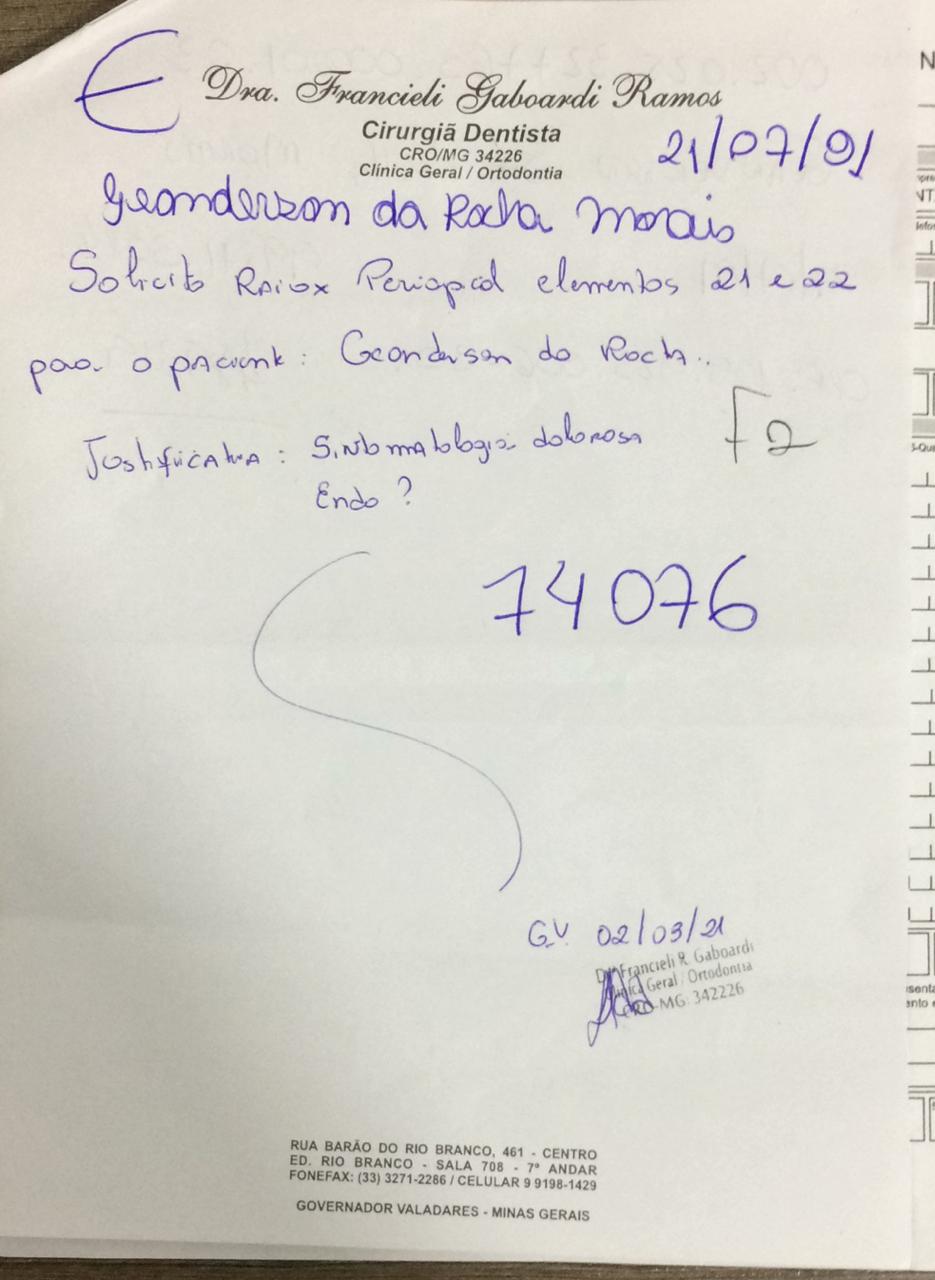 E
Dra. Francieli Gaboardi Ramos
Cirurgiã Dentista
CRO/MG 34226
Clínica Geral / Ortodontia
21/07/91
Geanderson da Rocha Morais
Solicito Raiox Periapical elementos 21 e 22
para o paciente: Geanderson da Rocha..
Justificativa: Sintomatologia dolorosa
Endo?
F2
74076
G.V. 02/03/21
Francieli R. Gaboardi
Clínica Geral / Ortodontia
CRO-MG: 342226
RUA BARÃO DO RIO BRANCO, 461 - CENTRO
ED. RIO BRANCO - SALA 708 - 7º ANDAR
FONEFAX: (33) 3271-2286 / CELULAR 9 9198-1429
GOVERNADOR VALADARES - MINAS GERAIS